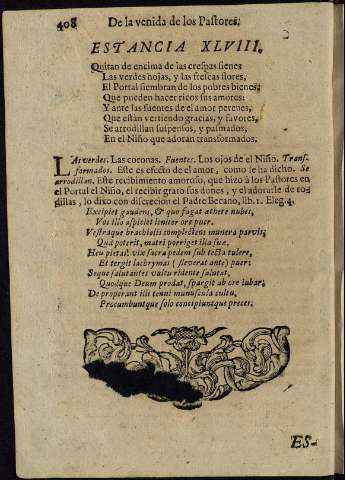 408 De la venida de los Paſtores.
ESTANCIA XLVIII.
Quitan de encima de las creſpas ſienes
Las verdes hojas, y las freſcas flores,
El Portal ſiembran de los pobres bienes,
Que pueden hacer ricos ſus amores:
Y ante las fuentes de el amor perenes,
Que eſtàn vertiendo gracias, y favores,
Se arrodillan ſuſpenſos, y paſmados,
En el Niño que adoran transformados.
LAs verdes. Las coronas. Fuentes. Los ojos de el Niño. Trans-
formados. Eſte es efecto de el amor, como ſe ha dicho. Se
arrodillan. Eſte recibimiento amoroſo, que hizo à los Paſtores en
el Portal el Niño, el recibir grato ſus dones, y el adorarle de ro-
dillas, lo dixo con diſcrecion el Padre Becano, lib. 1. Eleg. 4.
Excipiet gaudens, & quo fugat æthere nubes,
Vos illo aſpiciet leniter ore puer.
Veſtraque brachiolis complectens munera parvis,
Quà poterit, matri porriget illa ſuæ.
Heu pietas! vix ſacra pedem ſub tecta tulere,
Et tergit lachrymas (fleverat ante) puer:
Seque ſalutantes vultu ridente ſalutat,
Quodque Deum prodat, ſpargit ab ore iubar;
De properant illi tenui munuſcula cultu,
Procumbuntque ſolo concipiuntque preces.
ES-